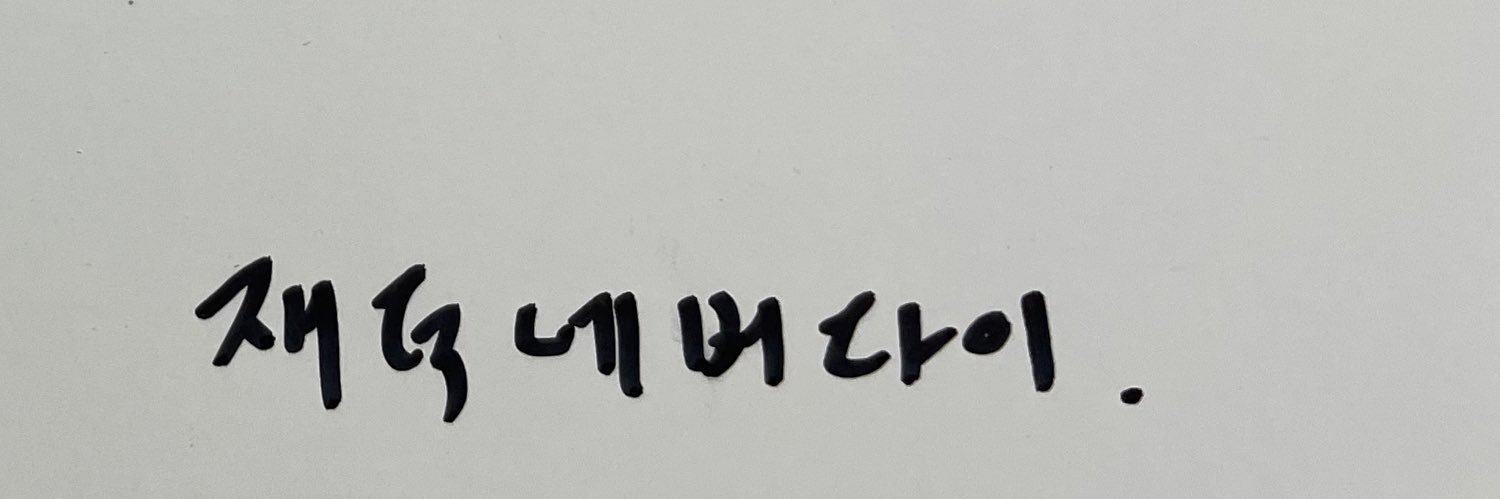 재덕네버다이.